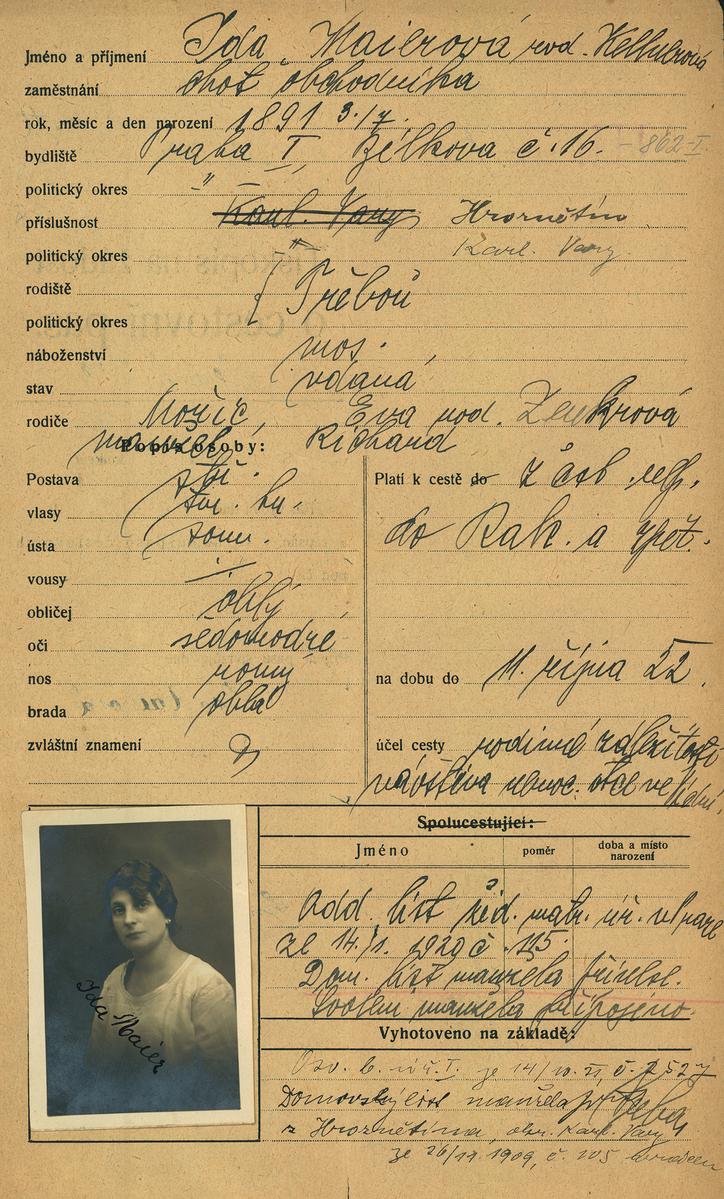 Jméno a příjmení Ida Maierová rod. Kellnerová
zaměstnání choť obchodníka
rok, měsíc a den narození 1891 3./7.
bydliště Praha I, Bílkova č. 16. - 862-I.
politický okres "
příslušnost Karl. Vary Hroznětín
politický okres " Karl. Vary.
rodiště Třeboň
politický okres
náboženství mos.
stav vdaná
rodiče Mořic, Eva rod.
manžel Richard
Popis osoby:
Postava stř.
vlasy
ústa soum.
vousy
obličej oblý
oči šedomodré
nos rovný
brada oblá
zvláštní znamení
Platí k cestě do z čsl. rep.
do Rak. a zpět.
na dobu do 11. října 22.
účel cesty rodinné záležitosti
návštěva nemoc. otce ve Vídni.
Spolucestující:
Jméno poměr doba a místo narození
Odd. list žid. matr. úř. v Praze
ze 14/1. 1920 č. 115.
Dom. list manžela přilož.
Svolení manžela připojeno.
Ida Maier
Vyhotoveno na základě:
Osv. b. I. ze 14/10. 21, č.
Domovský list manžela
z Hroznětína, okr. Karl. Vary
ze 26/11. 1909, č. 105